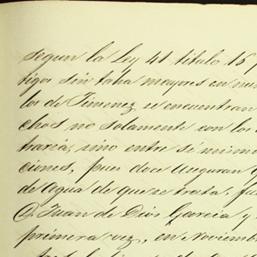 segun la Ley 41 titulo 16
tigos sin tacha mayores en
los de Jimenez se encuentran
chos no solamente con los
traria, sino entre si mismo
ciones, pues doce aseguran
de agua de que se trata. fu
D. Juan de Dios Garcia y
primera vez, en Noviembr